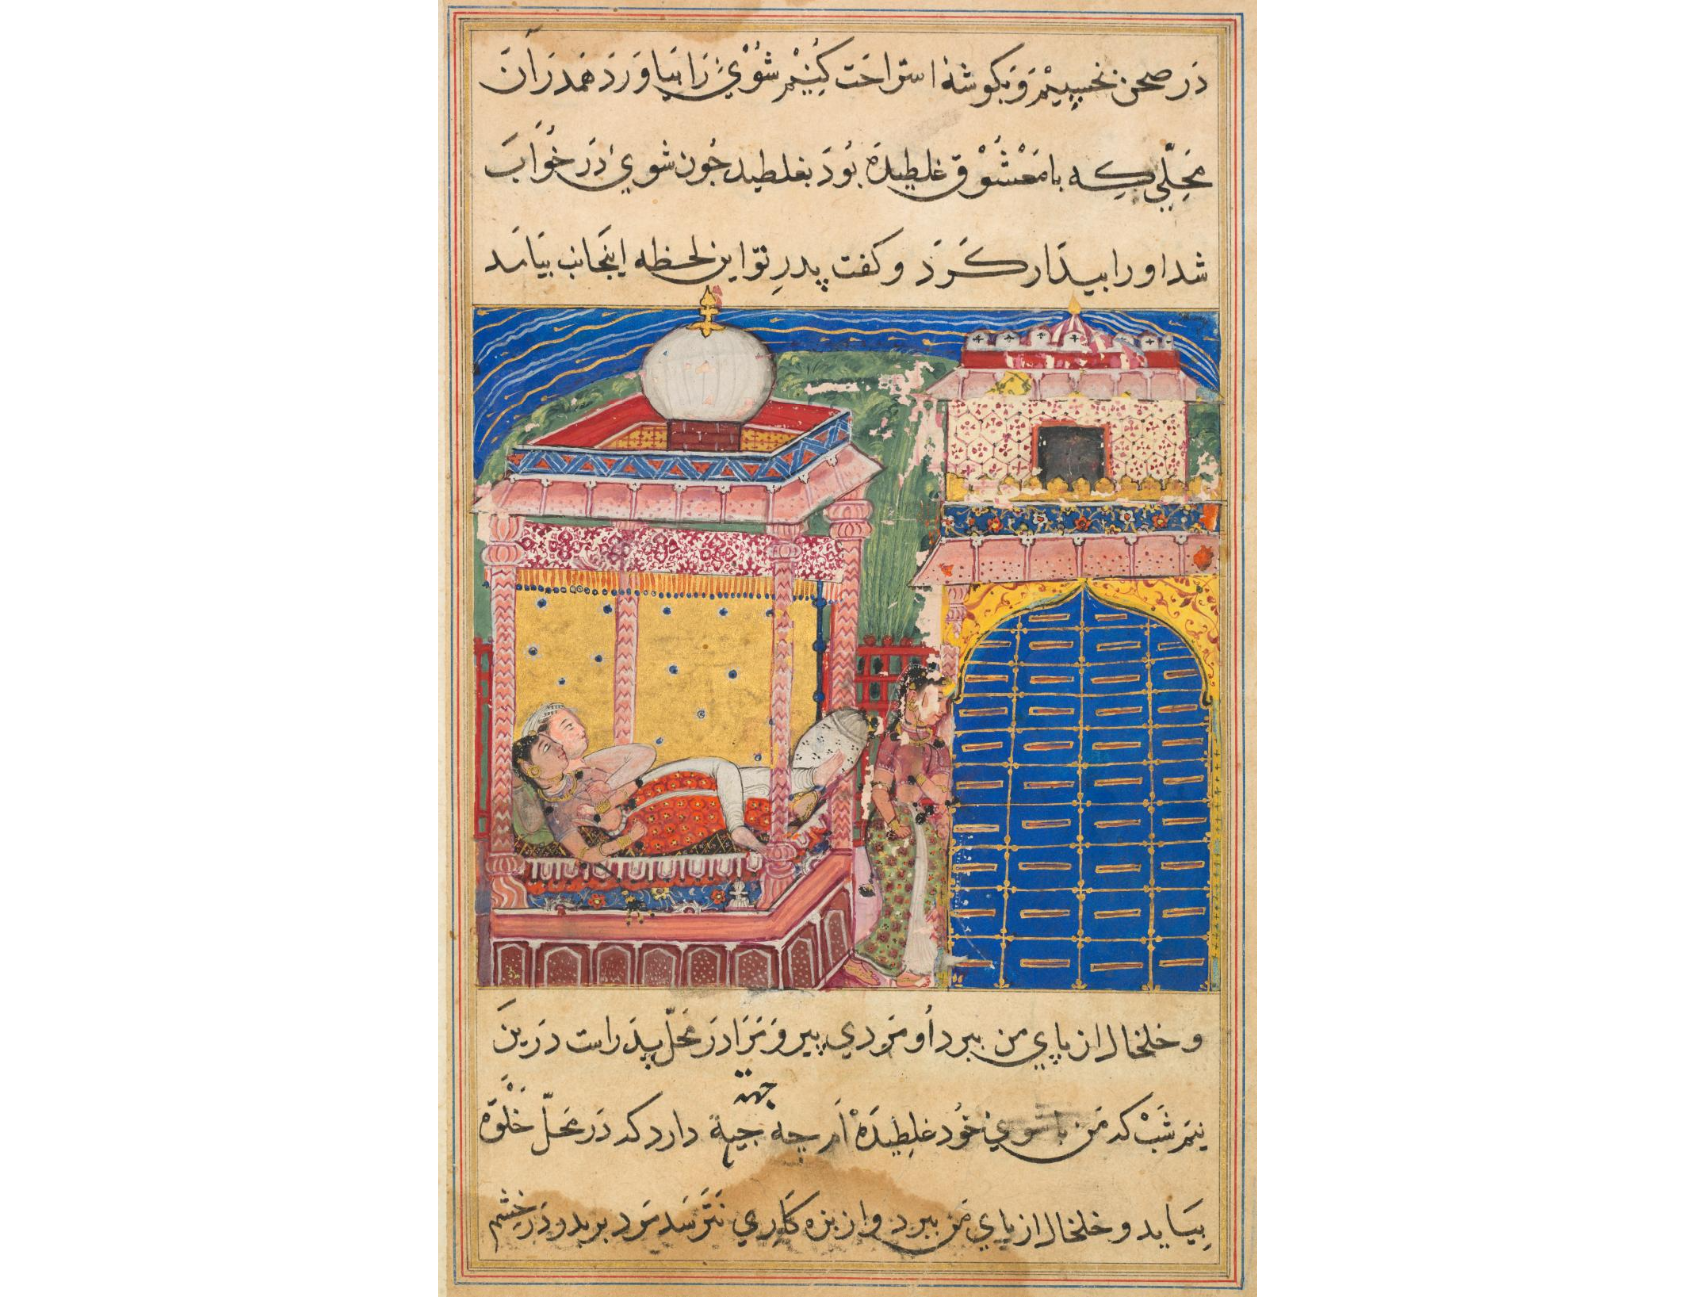 در صحن نخسپیم و بکوشۀ استراحت کنیم شوي را بیاورد همدران
محلّي که با معشوق غلطیده بود بغلطید جون شوي در خواب
شد او را بیدار کرد و کفت پدر تو این لحظه اینجانب بیامد
و خلخال از پاي من ببرد او مردي پیر و مرا در محل پدر است درین
نیم شب که من با شوي خود غلطیده ام چه جهة دارد که در محل خلوة
بیاید و خلخال از پاي من ببرد و از بزه کاري نترسد مرد بر پدر در خشم